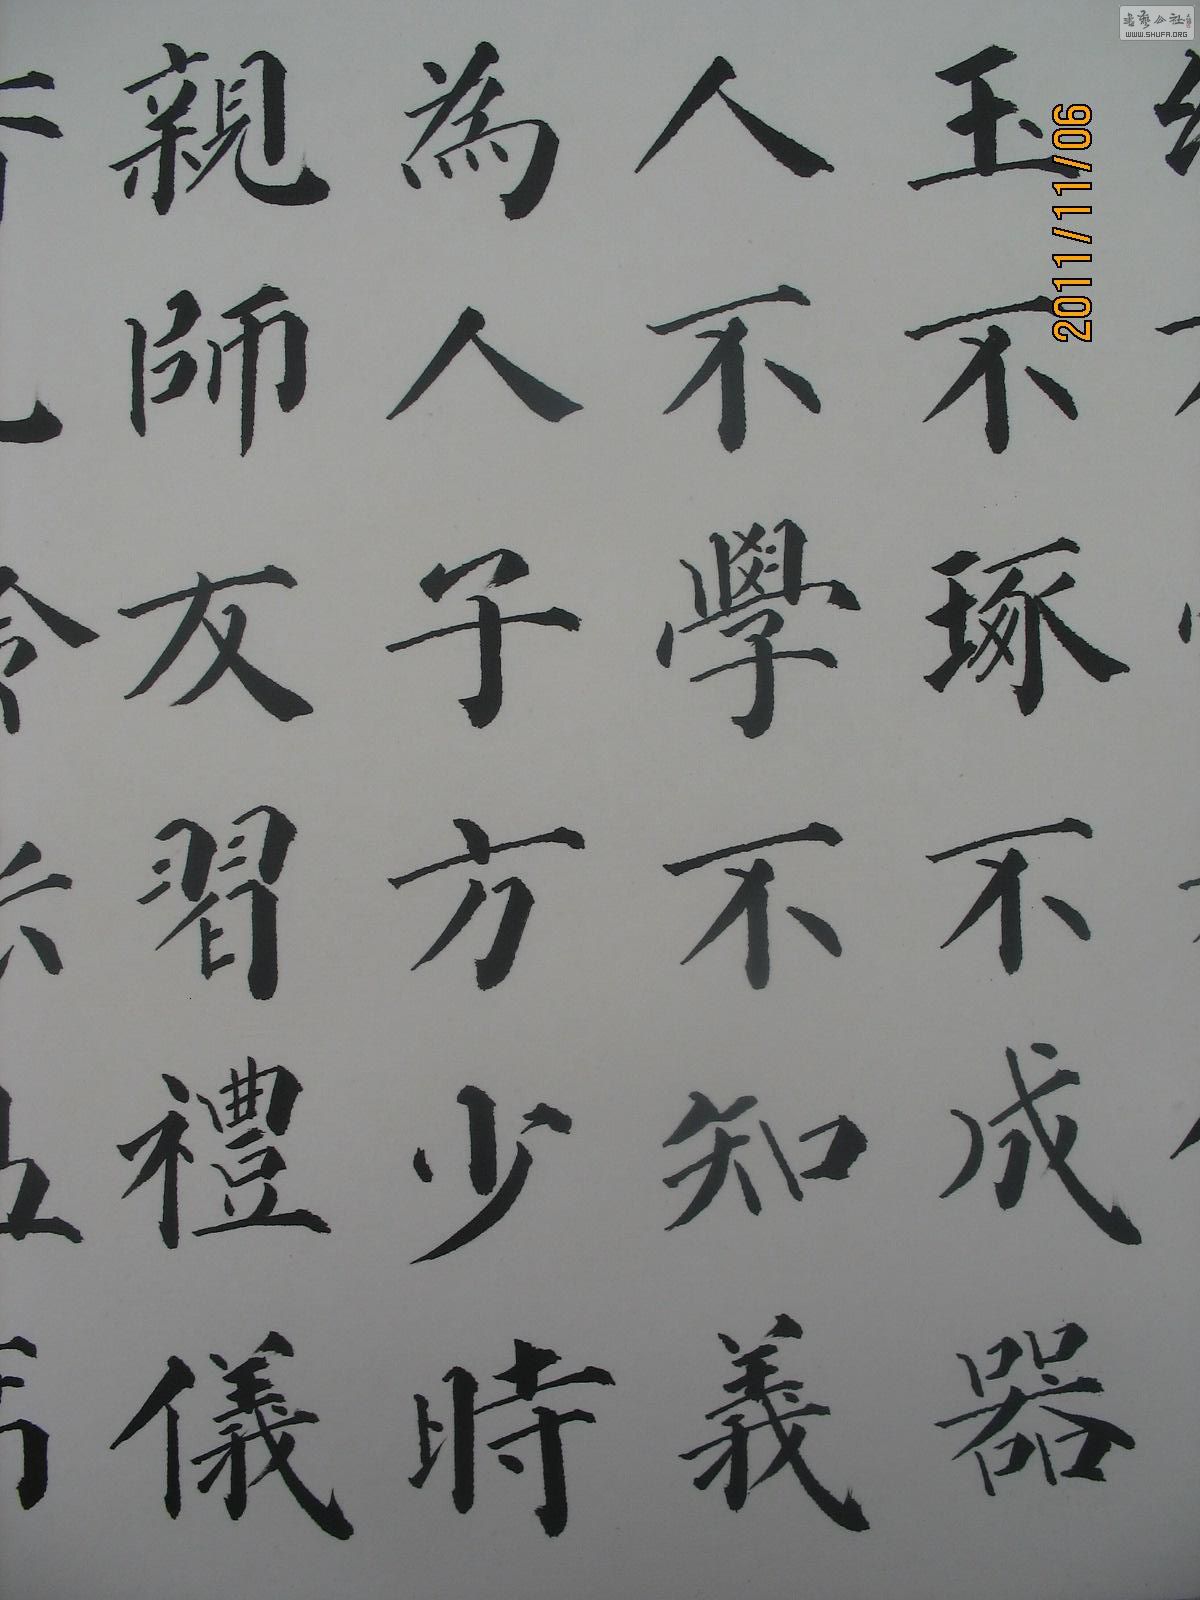 玉不琢不成器
人不學不知義
為人子方少時
親師友習禮儀
2011/11/06
WWW.SHUFA.ORG